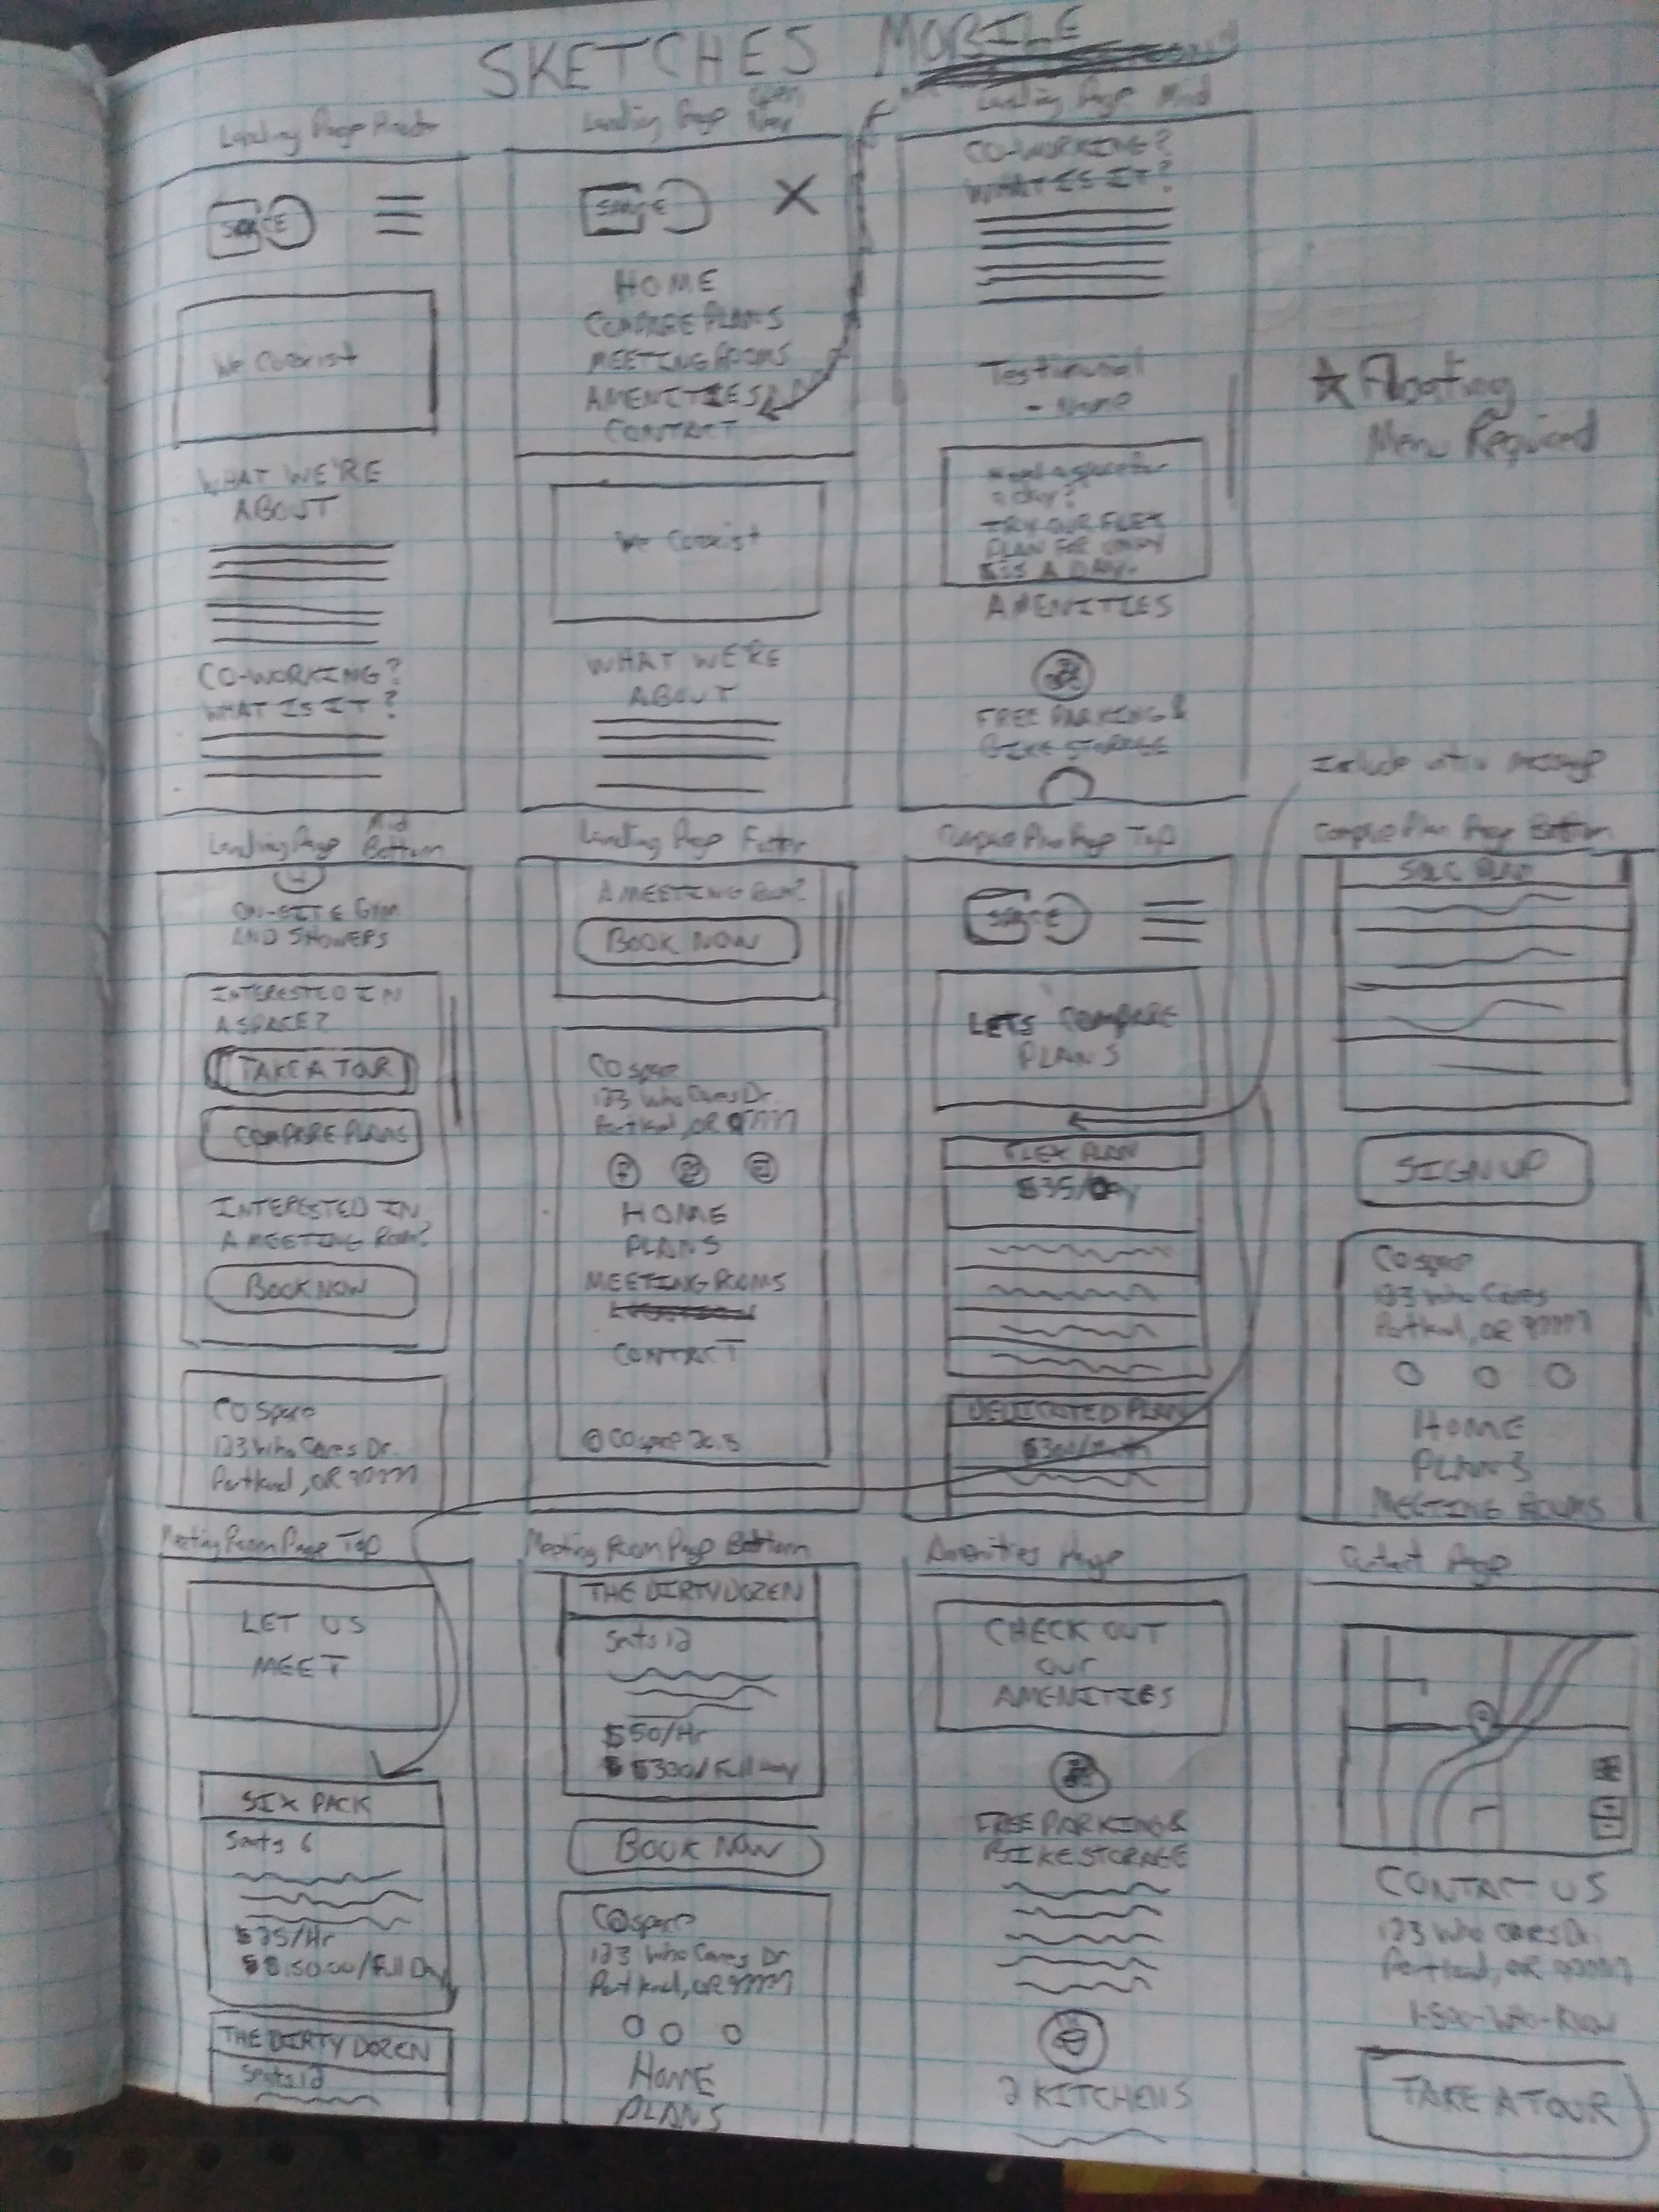 SKETCHES MOBILE
Landing Page Header
SPACE
We Coexist
WHAT WE'RE
ABOUT
CO-WORKING?
WHAT IS IT?
Landing Page Open
Nav
SPACE
X
HOME
COMPARE PLANS
MEETING ROOMS
AMENITIES
CONTACT
We Coexist
WHAT WE'RE
ABOUT
Landing Page Mid
CO-WORKING?
WHAT IS IT?
Testimonial
- Name
Need a space for
a day?
TRY OUR FLEX
PLAN FOR ONLY
A DAY.
AMENITIES
FREE PARKING &
BIKE STORAGE
Floating
Menu Required
Include intro message
Landing Page Mid
Bottom
ON-SITE GYM
AND SHOWERS
INTERESTED IN
A SPACE?
TAKE A TOUR
COMPARE PLANS
INTERESTED IN
A MEETING ROOM?
BOOK NOW
CO space
123 Who Cares Dr.
Portland, OR 97777
Landing Page Footer
A MEETING ROOM?
BOOK NOW
CO space
123 Who Cares Dr.
Portland, OR 97777
HOME
PLANS
MEETING ROOMS
CONTACT
© CO space
Compare Plan Page Top
SPACE
LETS COMPARE
PLANS
FLEX PLAN
$35/Day
DEDICATED PLAN
$300/Month
Compare Plan Page Bottom
PLAN
SIGN UP
CO space
123 Who Cares
Portland, OR 97777
HOME
PLANS
MEETING ROOMS
Meeting Room Page Top
LET US
MEET
SIX PACK
Seats 6
$25/Hr
$150.00/Full Day
THE DIRTY DOZEN
Seats 12
Meeting Room Page Bottom
THE DIRTY DOZEN
Seats 12
$50/Hr
$300/Full Day
BOOK NOW
CO space
123 Who Cares Dr
Portland, OR 97777
HOME
PLANS
Amenities Page
CHECK OUT
OUR
AMENITIES
FREE PARKING &
BIKE STORAGE
2 KITCHENS
Contact Page
CONTACT US
123 Who Cares Dr
Portland, OR 97777
1-800-Who-Know
TAKE A TOUR